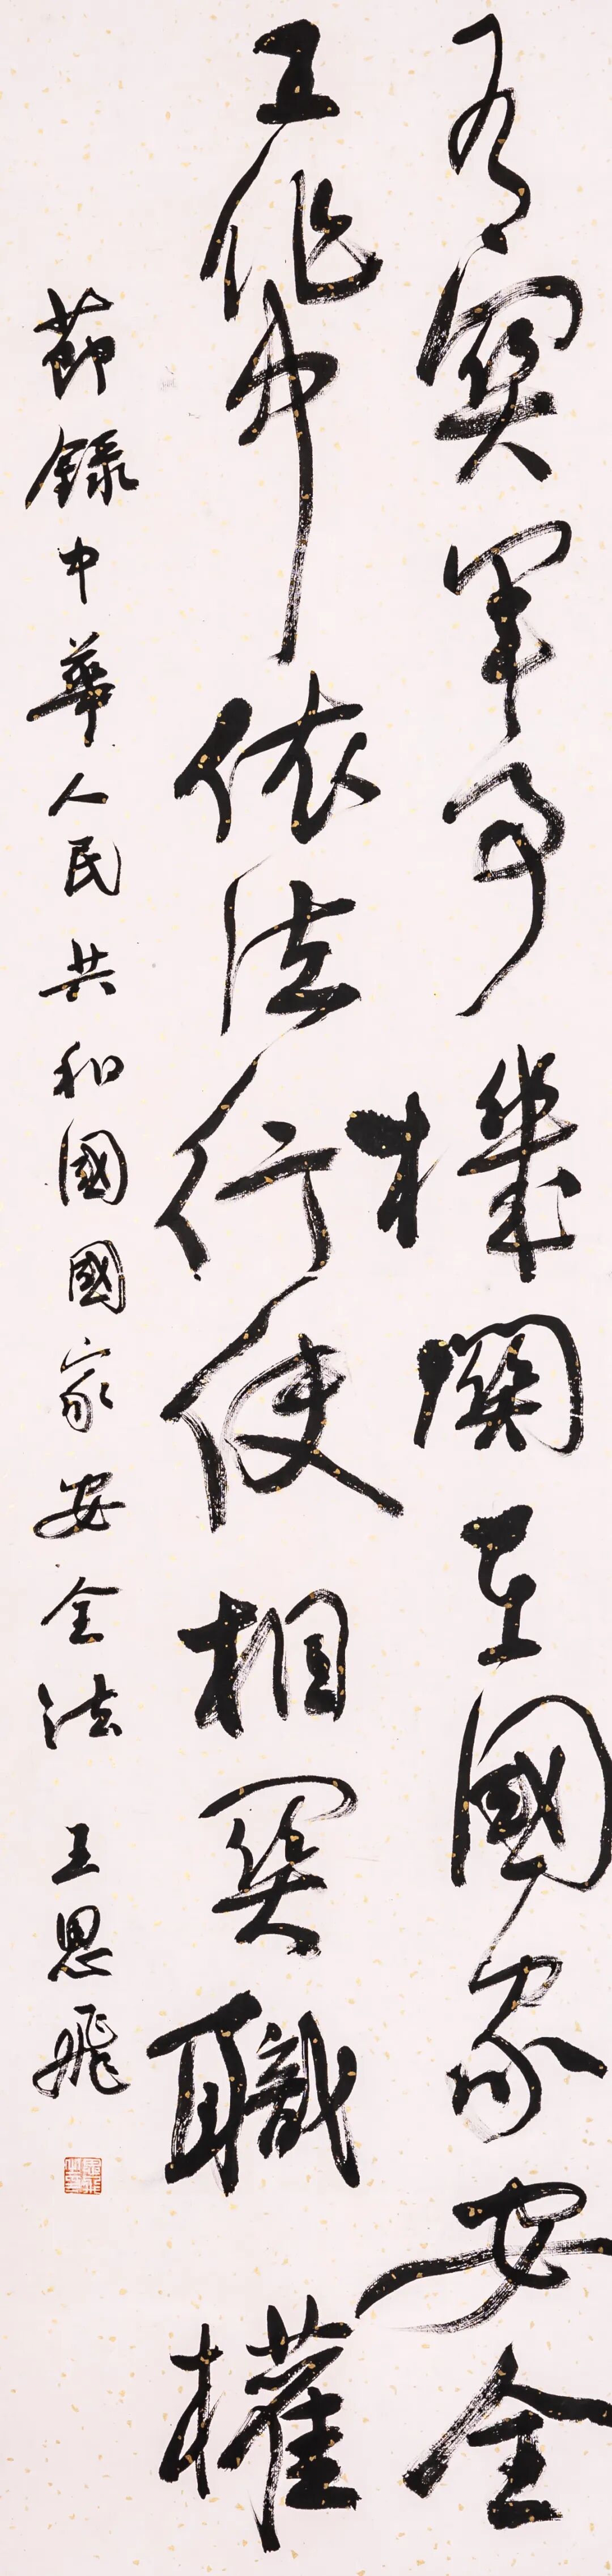 有關軍事機關在國家安全
工作中依法行使相關職權
節錄中華人民共和國國家安全法 王思飛